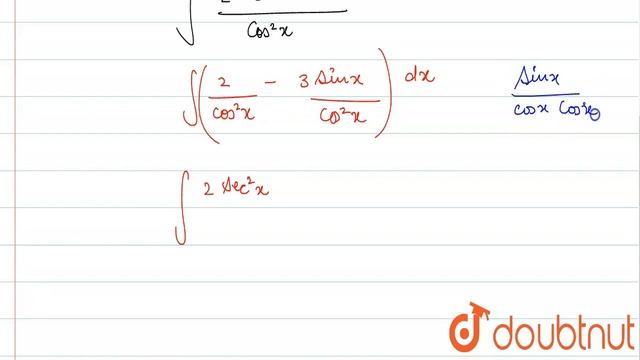 ∫ cos²x
∫( 2/cos²x - 3 sinx/cos²x ) dx
sinx/cosx cosx
∫ 2 sec²x
doubtnut